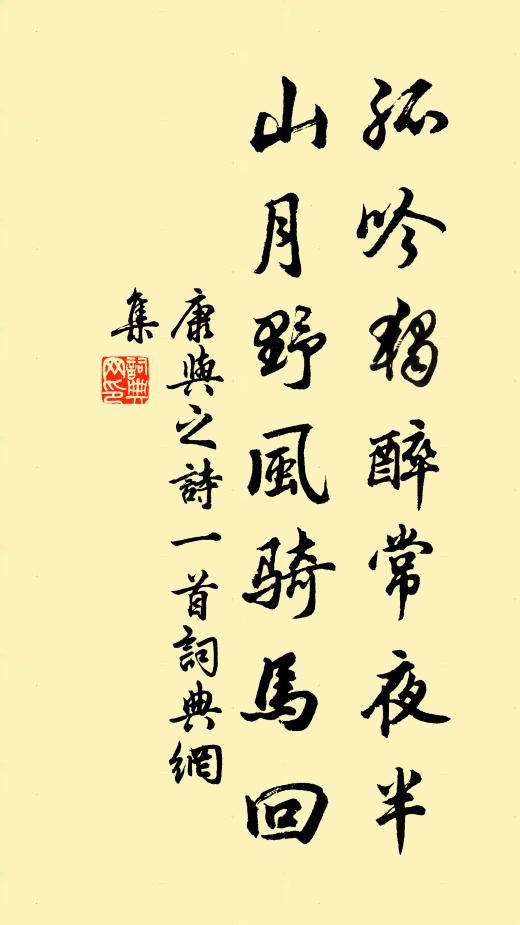 孤吟獨醉常夜半
山月野風騎馬回
康與之詩一首詞典網
集
詞典
网印